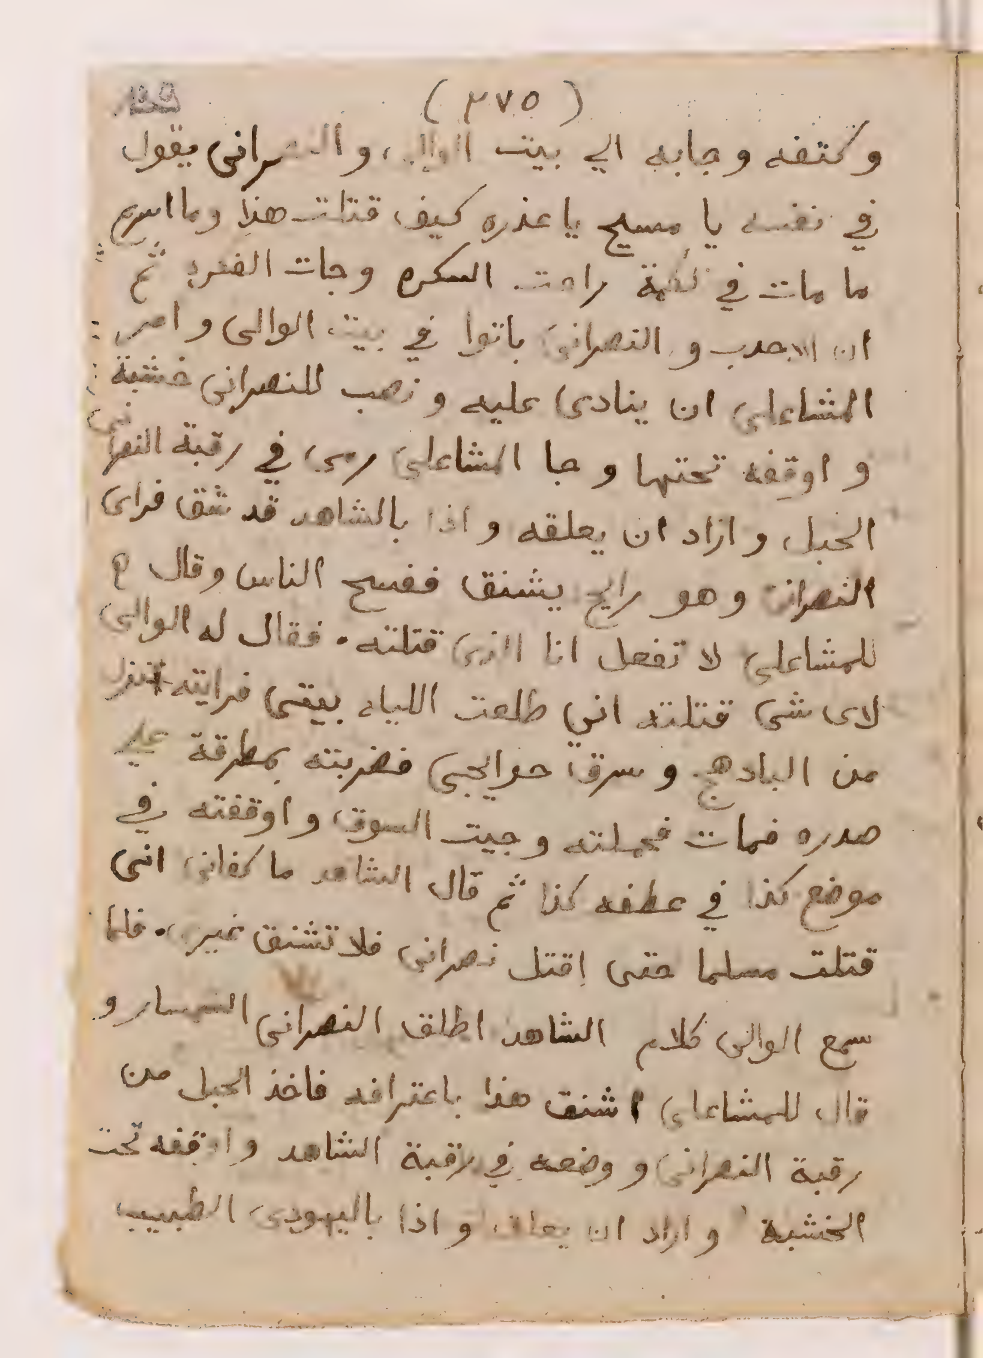 (٢٧٥)
وكتفه وجابه الي بيت الوالى والنصرانى يقول
في نفسه يا مسيح يا عذره كيف قتلت هذا وما اسرع
ما مات في لكمة راحت السكره وجات الفكره ثم
ان الاحدب والنصرانى باتوا في بيت الوالى وامر
المشاعلى ان ينادى عليه ونصب للنصرانى خشبة
و اوقفه تحتها وجا المشاعلى رمى في رقبة النصرانى
الحبل واراد ان يعلقه واذا بالشاهد قد شق فراى
النصرانى وهو رايح يشنق ففسح الناس وقال
للمشاعلى لا تفعل انا الذى قتلته . فقال له الوالى
لاى شى قتلته انى طلعت الليله بيتى فرايته نزل
من البادهج وسرق حوايجى فضربته بمطرقة على
صدره فمات فحملته وجيت السوق و اوقفته في
موضع كذا في عطفه كذا ثم قال الشاهد ما كفانى انى
قتلت مسلما حتى اقتل نصرانى فلا تشنق غيرى . فلما
سمع الوالى كلام الشاهد اطلق النصرانى السمسار و
قال للمشاعلى اشنق هذا باعترافه فاخذ الحبل من
رقبة النصرانى ووضعه في رقبة الشاهد واوقفه تحت
الخشبة واراد ان يعلقه واذا باليهودى الطبيب